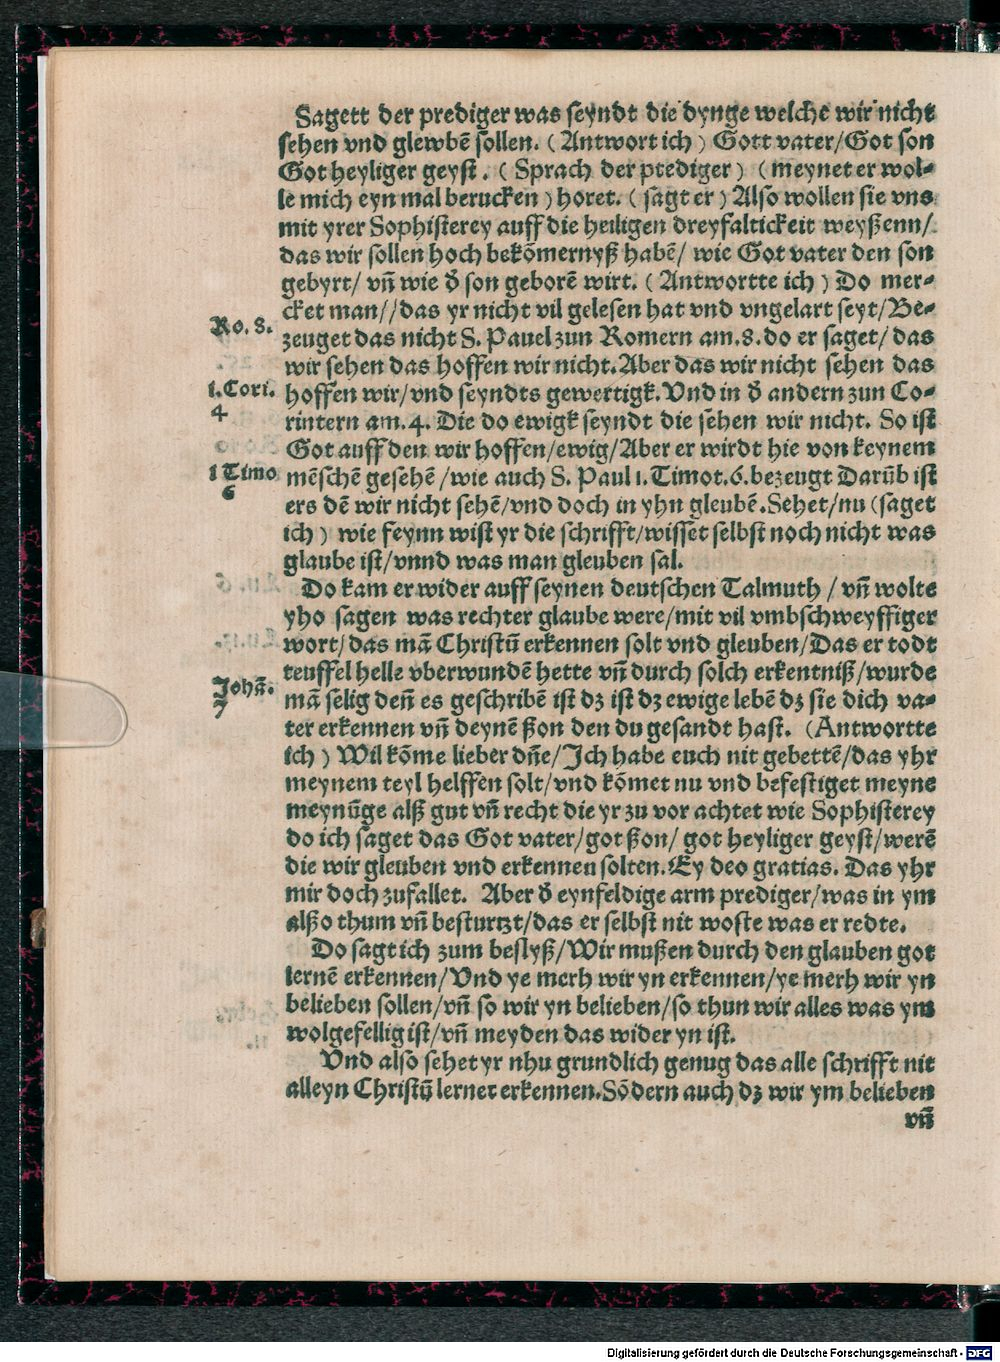 Sagett der prediger was seyndt die dynge welche wir nicht
sehen vnd glewbē sollen. (Antwort ich) Gott vater/Got son
Got heyliger geyst. (Sprach der prediger) (meynet er wol-
le mich eyn mal berucken) horet. (sagt er) Also wollen sie vns
mit yrer Sophisterey auff die heiligen dreyfaltickeit weyßenn/
das wir sollen hoch bekōmernyß habē/ wie Got vater den son
gebyrt/ vñ wie d̄ son geborē wirt. (Antwortte ich) Do mer-
cket man//das yr nicht vil gelesen hat vnd vngelart seyt/Be-
Ro. 8.
zeuget das nicht S. Pauel zun Romern am.8.do er saget/ das
wir sehen das hoffen wir nicht.Aber das wir nicht sehen das
1.Cori.
4
hoffen wir/vnd seyndts gewertigk.Vnd in d̄ andern zun Co-
rintern am.4. Die do ewigk seyndt die sehen wir nicht. So ist
Got auff den wir hoffen/ewig/Aber er wirdt hie von keynem
1 Timo
6
mēschē gesehē/wie auch S. Paul 1.Timot.6.bezeugt Darūb ist
ers dē wir nicht sehē/vnd doch in yhn gleubē.Sehet/nu (saget
ich) wie feynn wist yr die schrifft/wisset selbst noch nicht was
glaube ist/vnnd was man gleuben sal.
Do kam er wider auff seynen deutschen Talmuth/ vñ wolte
yho sagen was rechter glaube were/mit vil vmbschweyffiger
wort/das mā Christū erkennen solt vnd gleuben/Das er todt
teuffel helle vberwundē hette vñ durch solch erkentniß/wurde
Johā.
7
mā selig deñ es geschribē ist dz ist dz ewige lebē dz sie dich va-
ter erkennen vñ deynē ßon den du gesandt hast. (Antwortte
ich) Wil kōme lieber dñe/Ich habe euch nit gebettē/das yhr
meynem teyl helffen solt/vnd kōmet nu vnd befestiget meyne
meynūge alß gut vñ recht die yr zu vor achtet wie Sophisterey
do ich saget das Got vater/got ßon/ got heyliger geyst/werē
die wir gleuben vnd erkennen solten.Ey deo gratias. Das yhr
mir doch zufallet. Aber d̄ eynfeldige arm prediger/was in ym
alßo thum vñ besturtzt/das er selbst nit woste was er redte.
Do sagt ich zum beslyß/Wir mußen durch den glauben got
lernē erkennen/Vnd ye merh wir yn erkennen/ye merh wir yn
belieben sollen/vñ so wir yn belieben/so thun wir alles was ym
wolgefellig ist/vñ meyden das wider yn ist.
Vnd also sehet yr nhu grundlich genug das alle schrifft nit
alleyn Christū lernet erkennen.Sōdern auch dz wir ym belieben
vñ
Digitalisierung gefördert durch die Deutsche Forschungsgemeinschaft - DFG